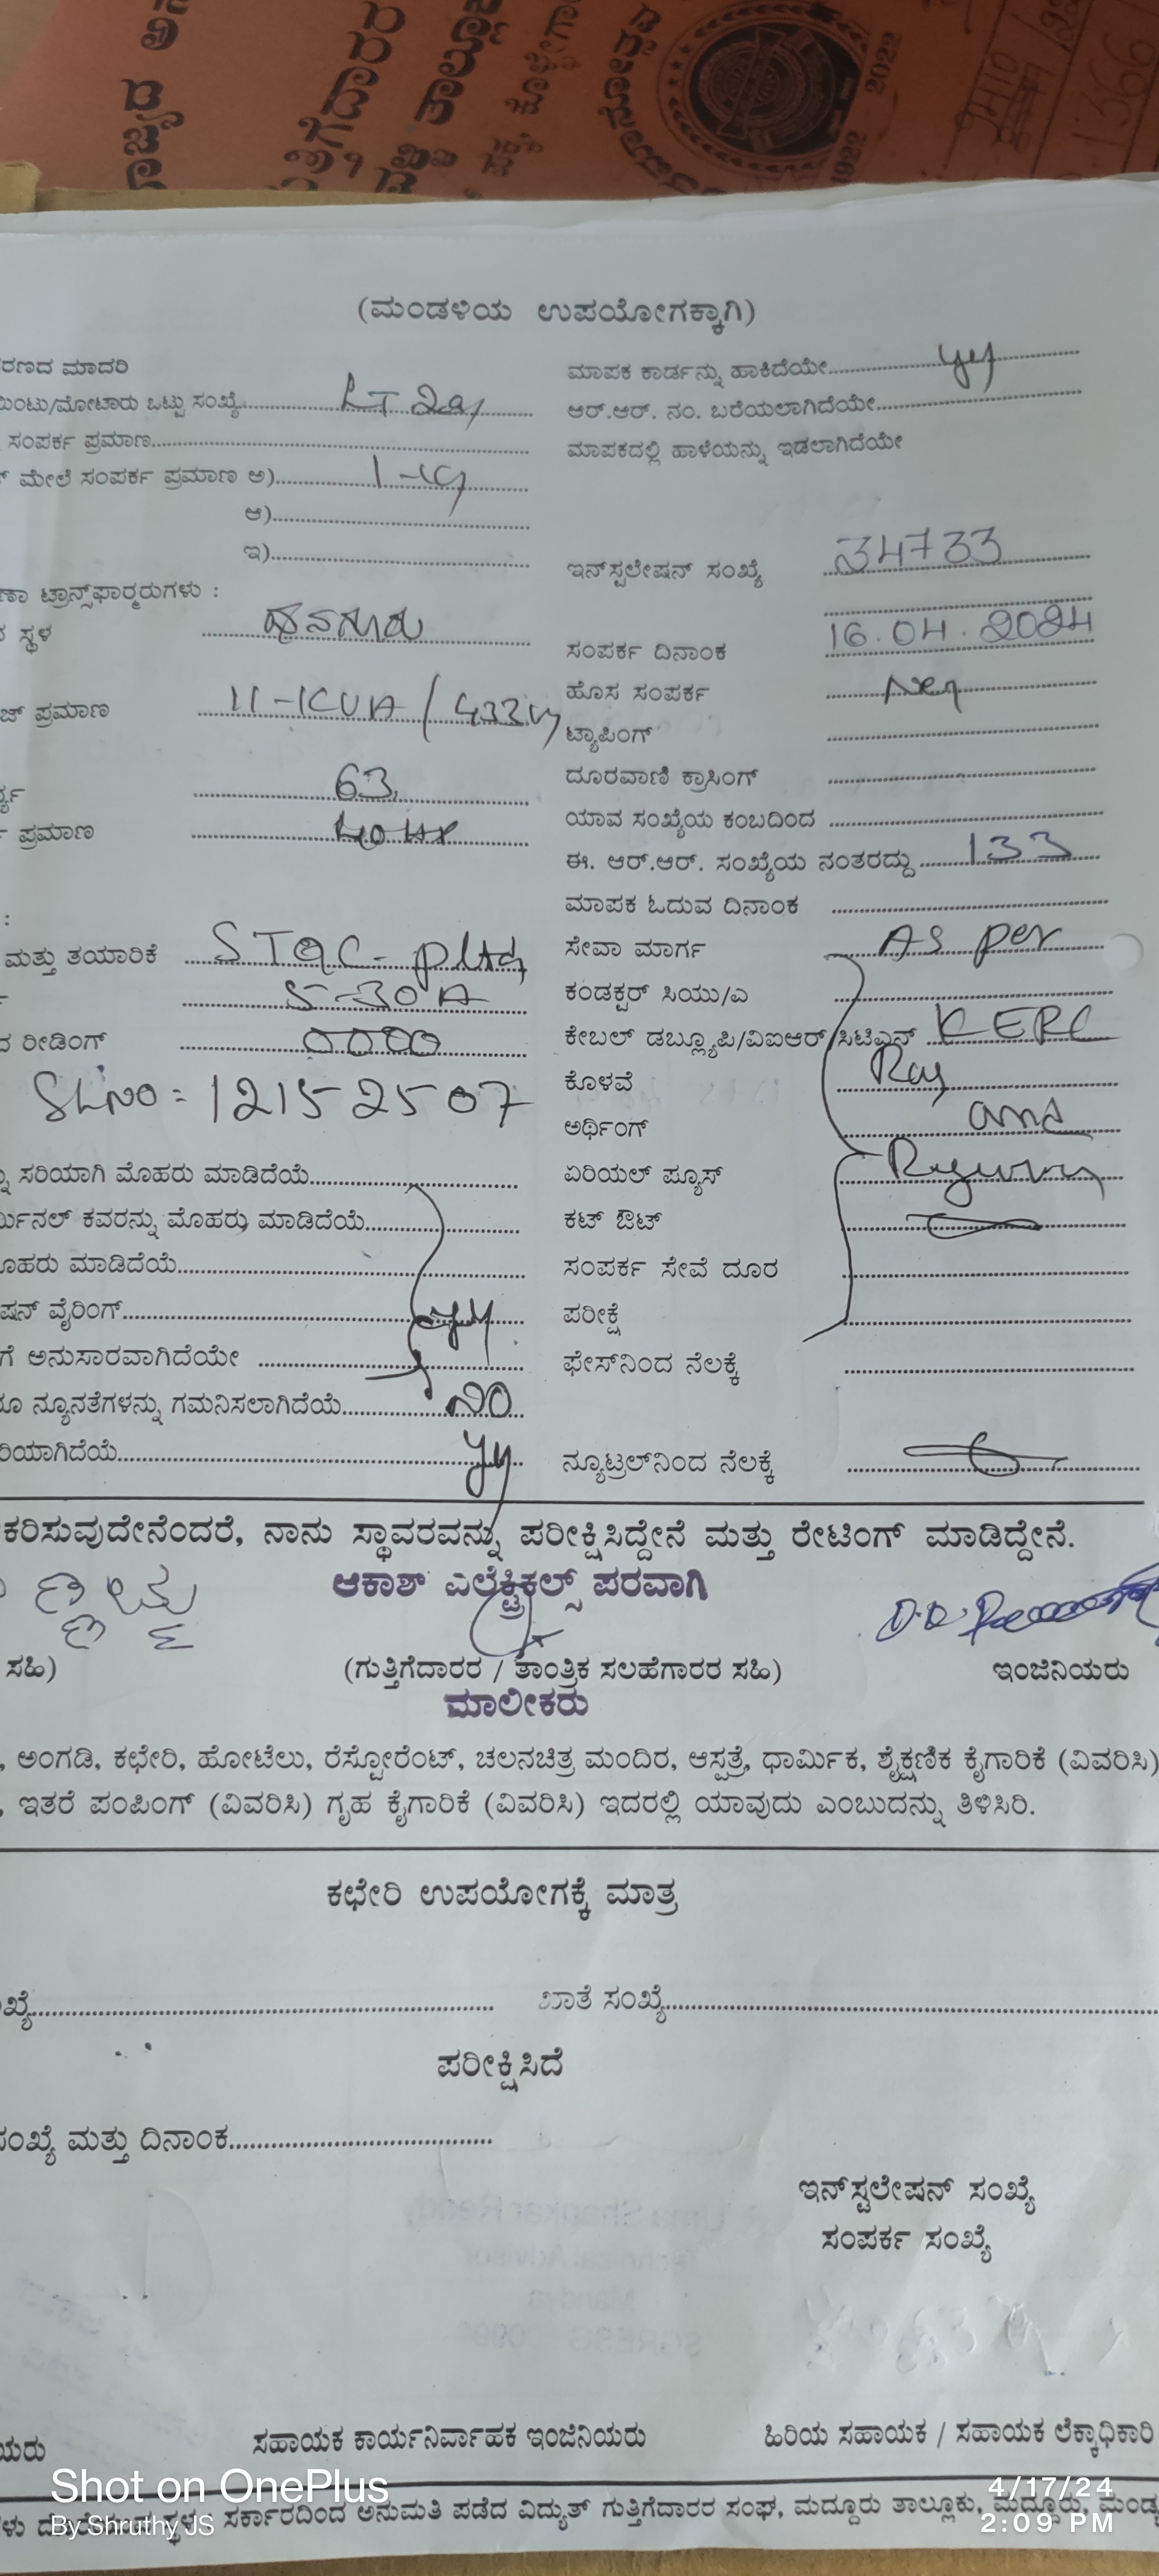 2022
1366
(ಮಂಡಳಿಯ ಉಪಯೋಗಕ್ಕಾಗಿ)
ರಣದ ಮಾದರಿ
ಯಿಂಟು/ಮೋಟಾರು ಒಟ್ಟು ಸಂಖ್ಯೆ LT 2a
ಸಂಪರ್ಕ ಪ್ರಮಾಣ
ಮೇಲೆ ಸಂಪರ್ಕ ಪ್ರಮಾಣ ಅ)
ಆ)
ಇ)
ಣಾ ಟ್ರಾನ್ಸ್‌ಫಾರ್ಮರುಗಳು :
ಸ್ಥಳ ಧನಗೂರು
ಜ್ ಪ್ರಮಾಣ 11-KVA / 433v
63
ಪ್ರಮಾಣ
:
ಮತ್ತು ತಯಾರಿಕೆ STQC-
5-30A
ದ ರೀಡಿಂಗ್ 0000
SLNO = 12152507
ಸರಿಯಾಗಿ ಮೊಹರು ಮಾಡಿದೆಯೆ
ರ್ಮಿನಲ್ ಕವರನ್ನು ಮೊಹರು ಮಾಡಿದೆಯೆ
ೊಹರು ಮಾಡಿದೆಯೆ
ಷನ್ ವೈರಿಂಗ್
ಗೆ ಅನುಸಾರವಾಗಿದೆಯೇ
ೂ ನ್ಯೂನತೆಗಳನ್ನು ಗಮನಿಸಲಾಗಿದೆಯೆ NO
ರಿಯಾಗಿದೆಯೆ
ಮಾಪಕ ಕಾರ್ಡನ್ನು ಹಾಕಿದೆಯೇ yes
ಆರ್.ಆರ್. ನಂ. ಬರೆಯಲಾಗಿದೆಯೇ
ಮಾಪಕದಲ್ಲಿ ಹಾಳೆಯನ್ನು ಇಡಲಾಗಿದೆಯೇ
ಇನ್‌ಸ್ಟಲೇಷನ್ ಸಂಖ್ಯೆ 34733
ಸಂಪರ್ಕ ದಿನಾಂಕ 16.04.2024
ಹೊಸ ಸಂಪರ್ಕ New
ಟ್ಯಾಪಿಂಗ್
ದೂರವಾಣಿ ಕ್ರಾಸಿಂಗ್
ಯಾವ ಸಂಖ್ಯೆಯ ಕಂಬದಿಂದ
ಈ. ಆರ್.ಆರ್. ಸಂಖ್ಯೆಯ ನಂತರದ್ದು 133
ಮಾಪಕ ಓದುವ ದಿನಾಂಕ
ಸೇವಾ ಮಾರ್ಗ As per
ಕಂಡಕ್ಟರ್ ಸಿಯು/ಎ
ಕೇಬಲ್ ಡಬ್ಲ್ಯೂಪಿ/ವಿಐಆರ್/ಸಿಟಿಎಸ್ KERC
ಕೊಳವೆ
ಅರ್ಥಿಂಗ್ and
ಏರಿಯಲ್ ಪ್ಯೂಸ್
ಕಟ್ ಔಟ್
ಸಂಪರ್ಕ ಸೇವೆ ದೂರ
ಪರೀಕ್ಷೆ
ಫೇಸ್‌ನಿಂದ ನೆಲಕ್ಕೆ
ನ್ಯೂಟ್ರಲ್‌ನಿಂದ ನೆಲಕ್ಕೆ
ಕರಿಸುವುದೇನೆಂದರೆ, ನಾನು ಸ್ಥಾವರವನ್ನು ಪರೀಕ್ಷಿಸಿದ್ದೇನೆ ಮತ್ತು ರೇಟಿಂಗ್ ಮಾಡಿದ್ದೇನೆ.
ಆಕಾಶ್ ಎಲೆಕ್ಟ್ರಿಕಲ್ಸ್ ಪರವಾಗಿ
ಸಹಿ) (ಗುತ್ತಿಗೆದಾರರ / ತಾಂತ್ರಿಕ ಸಲಹೆಗಾರರ ಸಹಿ) ಇಂಜಿನಿಯರು
ಮಾಲೀಕರು
, ಅಂಗಡಿ, ಕಛೇರಿ, ಹೋಟೆಲು, ರೆಸ್ಟೋರೆಂಟ್, ಚಲನಚಿತ್ರ ಮಂದಿರ, ಆಸ್ಪತ್ರೆ, ಧಾರ್ಮಿಕ, ಶೈಕ್ಷಣಿಕ ಕೈಗಾರಿಕೆ (ವಿವರಿಸಿ)
, ಇತರೆ ಪಂಪಿಂಗ್ (ವಿವರಿಸಿ) ಗೃಹ ಕೈಗಾರಿಕೆ (ವಿವರಿಸಿ) ಇದರಲ್ಲಿ ಯಾವುದು ಎಂಬುದನ್ನು ತಿಳಿಸಿರಿ.
ಕಛೇರಿ ಉಪಯೋಗಕ್ಕೆ ಮಾತ್ರ
ಖ್ಯೆ ಖಾತೆ ಸಂಖ್ಯೆ
ಪರೀಕ್ಷಿಸಿದೆ
ಸಂಖ್ಯೆ ಮತ್ತು ದಿನಾಂಕ
ಇನ್‌ಸ್ಟಲೇಷನ್ ಸಂಖ್ಯೆ
ಸಂಪರ್ಕ ಸಂಖ್ಯೆ
ಯರು ಸಹಾಯಕ ಕಾರ್ಯನಿರ್ವಾಹಕ ಇಂಜಿನಿಯರು ಹಿರಿಯ ಸಹಾಯಕ / ಸಹಾಯಕ ಲೆಕ್ಕಾಧಿಕಾರಿ
ಸ್ಥಳ : ಸರ್ಕಾರದಿಂದ ಅನುಮತಿ ಪಡೆದ ವಿದ್ಯುತ್ ಗುತ್ತಿಗೆದಾರರ ಸಂಘ, ಮದ್ದೂರು ತಾಲ್ಲೂಕು, ಮದ್ದೂರು, ಮಂಡ್ಯ
Shot on OnePlus
By Shruthy JS
4/17/24
2:09 PM